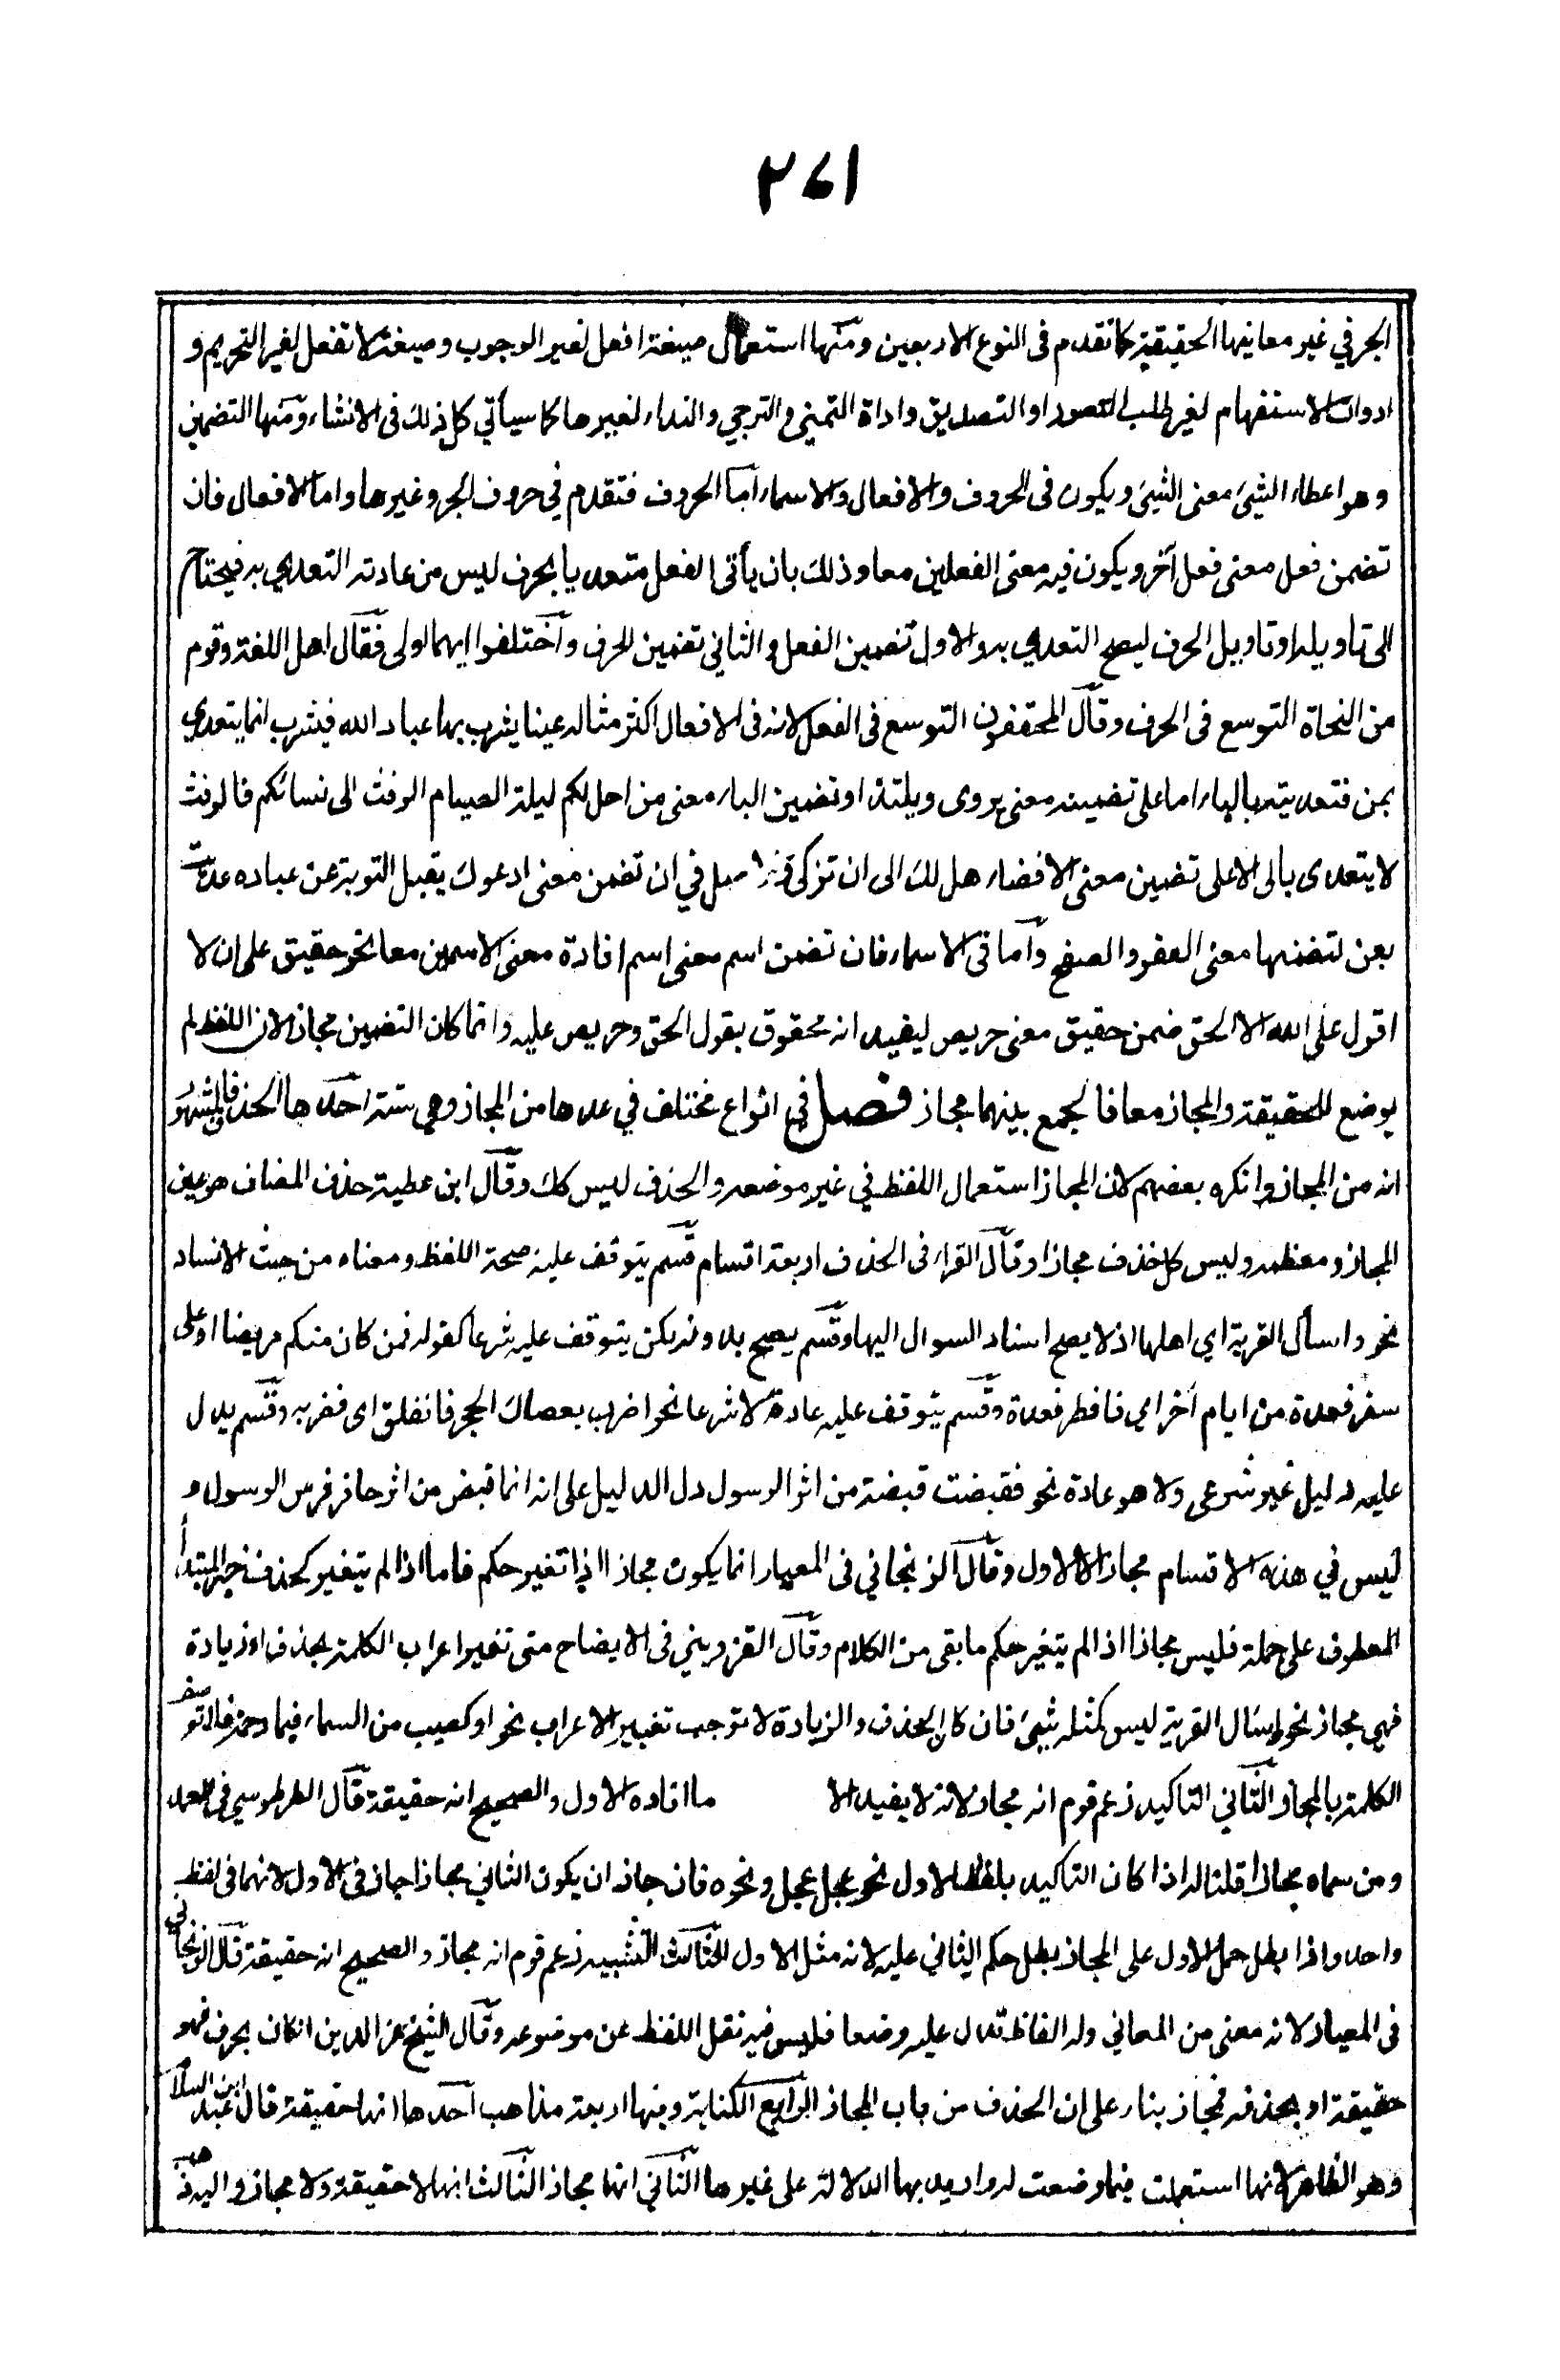 ٣٧١
الجر في غير معانيها الحقيقية كما تقدم فى النوع الاربعين ومنها استعمال صيغة افعل لغير الوجوب وصيغة لا تفعل لغير التحريم و
ادوات الاستفهام لغير طلب التصور او التصديق واداة التمني والترجي والنداء لغيرها كما سيأتي كل ذلك فى الانشاء ومنها التضمين
وهو اعطاء الشيء معنى الشيء ويكون فى الحروف والافعال والاسماء اما الحروف فتقدم في حروف الجر وغيرها واما الافعال فان
تضمن فعل معنى فعل آخر ويكون فيه معنى الفعلين معا وذلك بان يأتى الفعل متعديا بحرف ليس من عادته التعدي به فيحتاج
الى تاويله او تاويل الحرف ليصح التعدي به والاول تضمين الفعل والثاني تضمين الحرف واختلفوا ايهما اولى فقال اهل اللغة وقوم
من النحاة التوسع فى الحرف وقال المحققون التوسع فى الفعل لانه فى الافعال اكثر مثاله عينا يشرب بها عباد الله فيشرب انما يتعدي
بمن فتعديته بالباء اما على تضمينه معنى يروى ويلتذ او تضمين الباء معنى من احل لكم ليلة الصيام الرفث الى نسائكم فالرفث
لا يتعدى بالى الا على تضمين معنى الافضاء هل لك الى ان تزكى والاصل في ان تضمن معنى ادعوك يقبل التوبة عن عباده عديت
بعن لتضمنها معنى العفو والصفح واما فى الاسماء فان تضمن اسم معنى اسم افادة معنى الاسمين معا نحو حقيق على ان لا
اقول على الله الا الحق ضمن حقيق معنى حريص ليفيد انه محقوق بقول الحق وحريص عليه وانما كان التضمين مجازا لان اللفظ لم
يوضع للحقيقة والمجاز معا فالجمع بينهما مجاز فصل في انواع مختلف في عدها من المجاز وهي ستة احدها الحذف فالمشهور
انه من المجاز وانكره بعضهم لان المجاز استعمال اللفظ في غير موضعه والحذف ليس كك وقال ابن عطية حذف المضاف هو عين
المجاز ومعظمه وليس كل حذف مجازا وقال القراء فى الحذف اربعة اقسام قسم يتوقف عليه صحة اللفظ ومعناه من حيث الاسناد
نحو واسأل القرية اي اهلها اذ لا يصح اسناد السوال اليها وقسم يصح بدونه لكن يتوقف عليه شرعا كقوله فمن كان منكم مريضا او على
سفر فعدة من ايام أخر اي فافطر فعدة وقسم يتوقف عليه عادة لا شرعا نحو اضرب بعصاك الحجر فانفلق اى فضربه وقسم يدل
عليه دليل غير شرعي ولا هو عادة نحو فقبضت قبضة من اثر الرسول دل الدليل على انه انما قبض من اثر حافر فرس الرسول و
ليس في هذه الاقسام مجاز الا الاول وقال الزنجاني فى المعيار انما يكون مجازا اذا تغير حكم فاما اذا لم يتغير كحذف خبر المبتدأ
المعطوف على جملة فليس مجازا اذا لم يتغير حكم ما بقى من الكلام وقال القزويني فى الايضاح متى تغير اعراب الكلمة بحذف او زيادة
فهي مجاز نحو واسئال القرية ليس كمثله شيئ فان كان الحذف والزيادة لا توجب تغيير الاعراب نحو او كصيب من السماء فيما رحمة فلا توصف
الكلمة بالمجاز الثاني التاكيد زعم قوم انه مجاز لانه لا يفيد الا ما افاده الاول والصحيح انه حقيقة قال الطرطوسي فى العمد
ومن سماه مجازا قلنا له اذا كان التاكيد بلفظ الاول نحو عجل عجل ونحوه فان جاز ان يكون الثاني مجازا جاز فى الاول لانهما فى لفظ
واحد واذا بطل حمل الاول على المجاز بطل حكم الثاني عليه لانه مثل الاول الثالث التشبيه زعم قوم انه مجاز والصحيح انه حقيقة قال الزنجاني
فى المعيار لانه معنى من المعاني وله الفاظ تدل عليه وضعا فليس فيه نقل اللفظ عن موضوعه وقال الشيخ عز الدين ان كان بحرف فهو
حقيقة او بحذفه فمجاز بناء على ان الحذف من باب المجاز الرابع الكناية وفيها اربعة مذاهب احدها انها حقيقة قال ابن عبد السلام
وهو الظاهر لانها استعملت فيما وضعت له واريد بها الدلالة على غيرها الثاني انها مجاز الثالث انها لا حقيقة ولا مجاز واليه ذهب